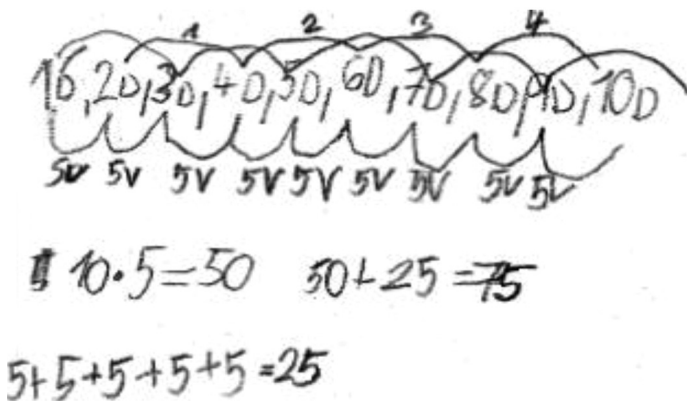 1 2 3 4
1D, 2D, 3D, 4D, 5D, 6D, 7D, 8D, 9D, 10D
5V 5V 5V 5V 5V 5V 5V 5V 5V
10·5=50 50+25=75
5+5+5+5+5=25